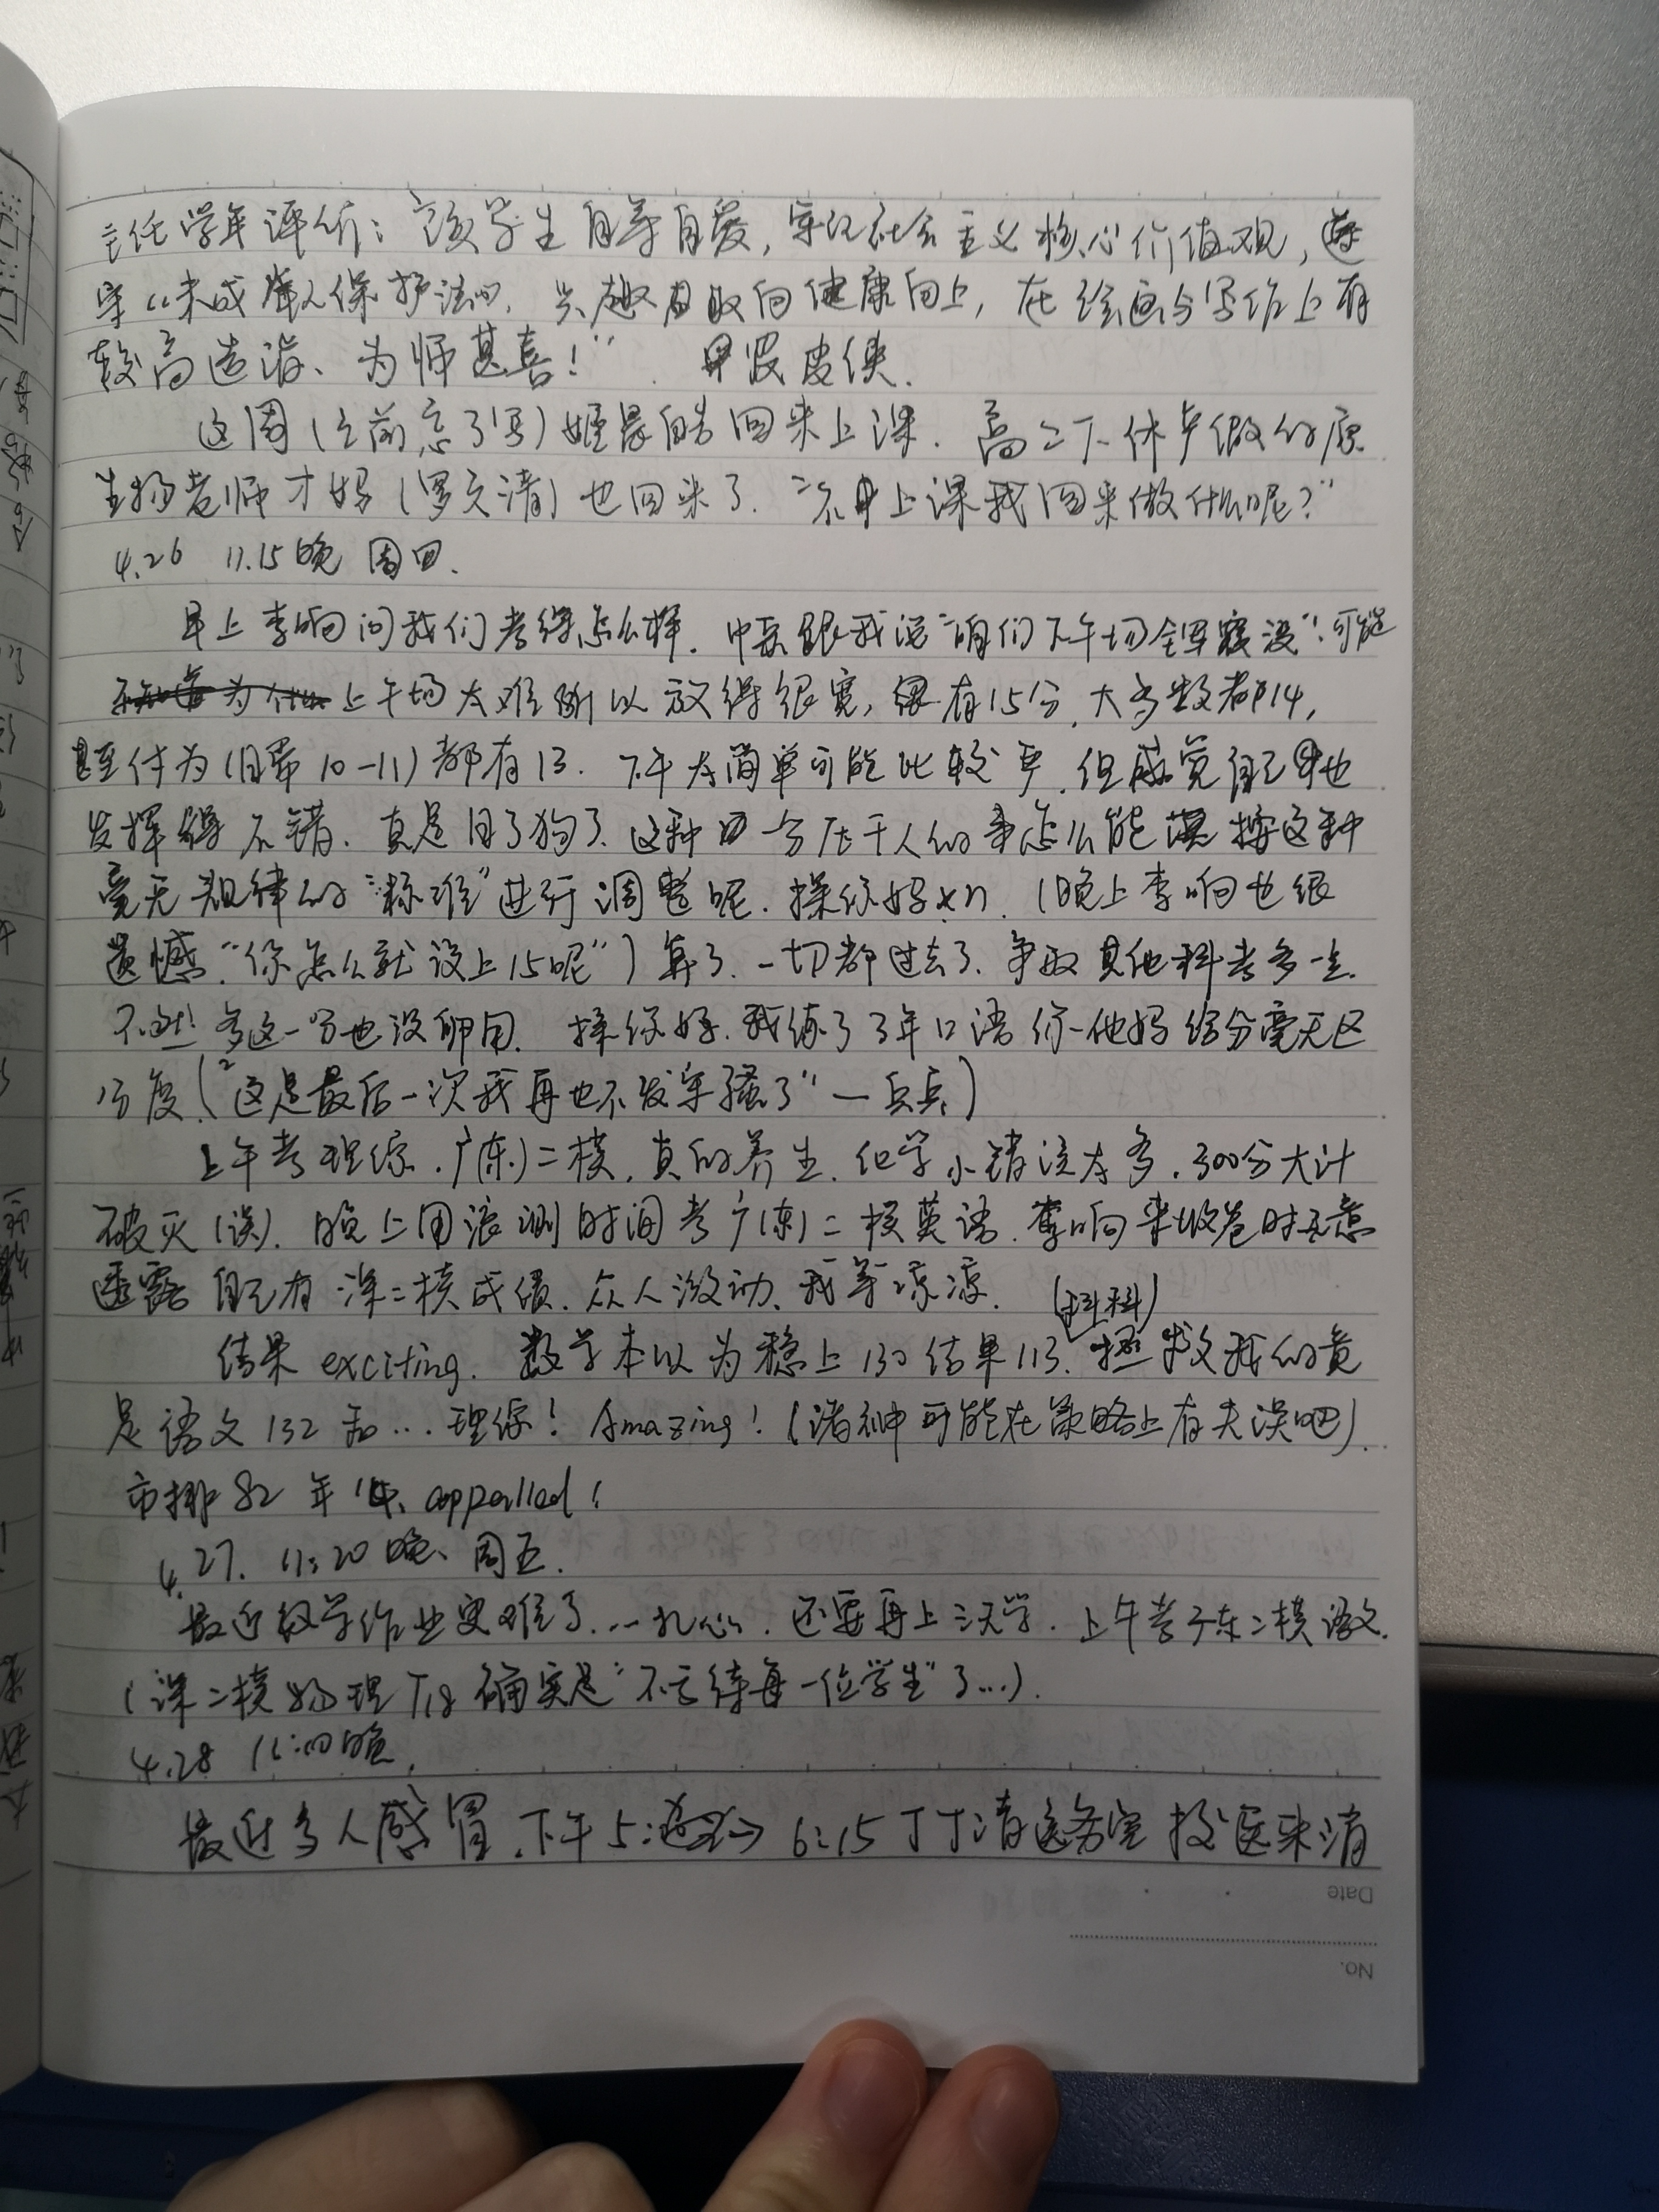 主任学年评价：“该学生自尊自爱，牢记社会主义核心价值观，遵
守《未成年人保护法》，兴趣取向健康向上，在绘画与写作上有
较高造诣、为师甚喜！” 皮侠.
这周(之前忘了写) 回来上课. 高二下休产假的原
生物老师才妈(罗文清)也回来了. “不上课我回来做什么呢？”
4.26 11.15晚 周四.
早上李响问我们考得怎么样. 跟我说“咱们下午场全军覆没”.可能
上午场太难所以放得很宽, 很有15分, 大多数都14,
甚至体为(自带10-11)都有13. 下午太简单可能比较严, 但感觉自己也
发挥得不错. 真是日了狗了. 这种一分压千人的事怎么能按这种
毫无规律的“标准”进行调整呢. 操你妈xn. (晚上李响也很
遗憾“你怎么就没上15呢”) 算了. 一切都过去了. 争取其他科考多一点.
不然多这一分也没卵用. 操你妈. 我练了3年口语你他妈给分毫无区
分度(“这是最后一次我再也不发牢骚了”—兵兵)
上午考理综. 广(东)二模, 真的养生. 化学小错误太多. 300分大计
破灭(误). 晚上用限测时间考广(东)二模英语. 李响来收卷时无意
透露自己有深二模成绩. 众人激动、我等凉凉.
(理科)
结果 exciting. 数学本以为稳上130结果113. 拯救我的竟
是语文132和…理综! Amazing! (诸神可能在策略上有失误吧).
市排82 年14. appalled!
4.27. 11:20晚、周五.
最近数学作业更难了…扎心. 还要再上三天学. 上午考广东二模语文.
(深二模物理T18确实是“不亏待每一位学生”了…).
4.28 11:00晚.
最近多人感冒. 下午5: → 6:15 丁丁请医务室校医来消
Date
No.